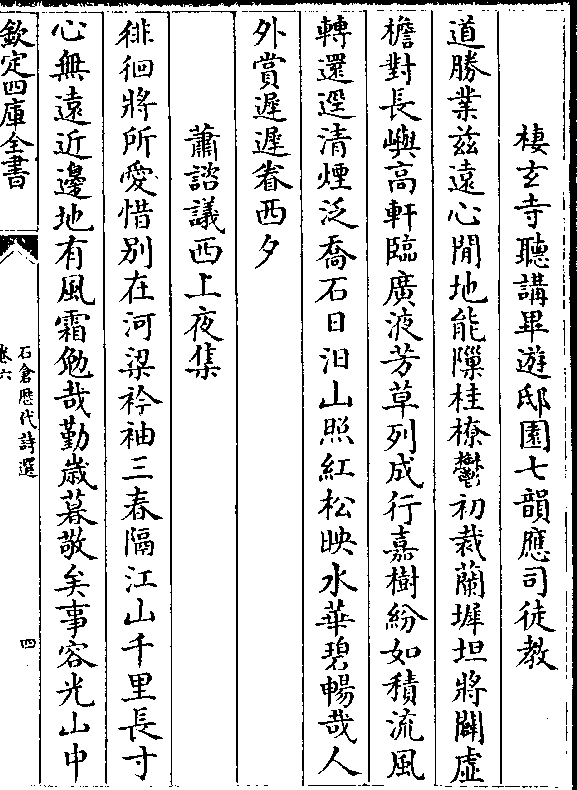 棲玄寺聽講畢遊邸園七韻應司徒教
道勝業兹遠心閒地能隟桂橑鬱初裁蘭墀坦將闢虚
檐對長嶼高軒臨廣液芳草列成行嘉樹紛如積流風
轉還逕清煙泛喬石日汨山照紅松映水華碧暢哉人
外賞遲遲眷西夕
蕭諮議西上夜集
徘徊將所愛惜别在河梁衿袖三春隔江山千里長寸
心無遠近邊地有風霜勉哉勤歳暮敬矣事容光山中
欽定四庫全書
石倉歴代詩選
卷六
四